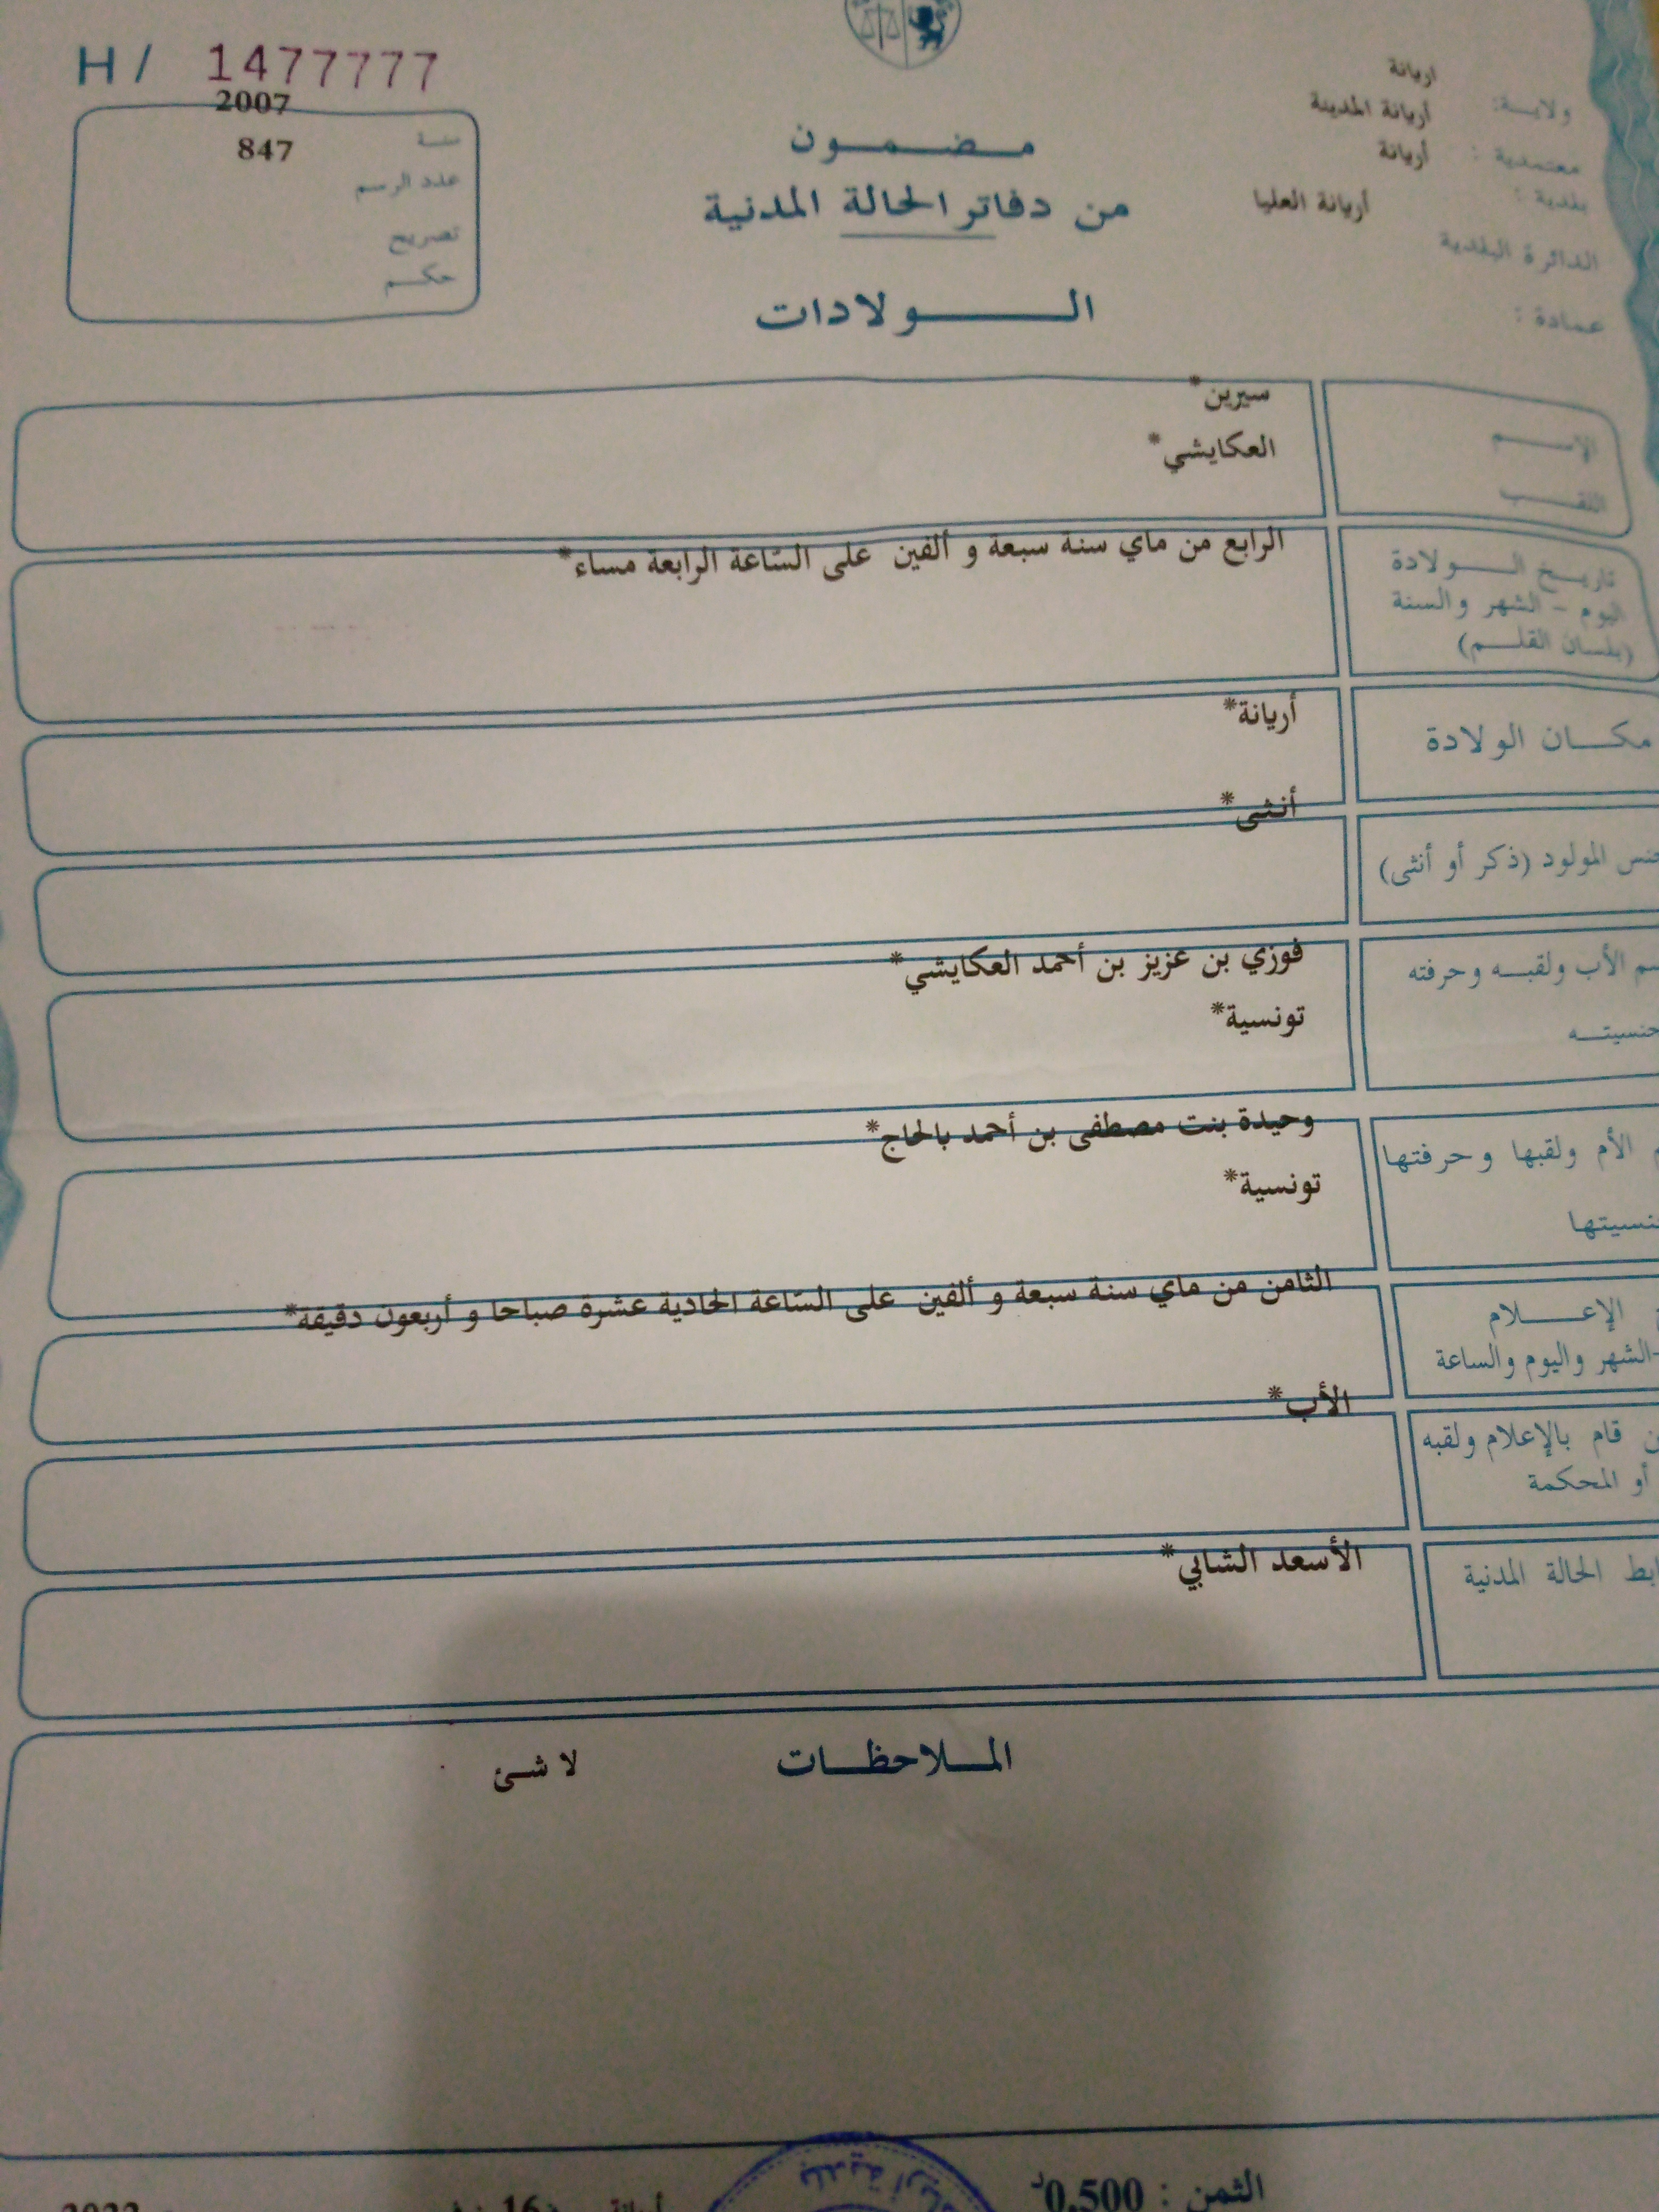 H / 1477777
2007
سنة
847
عدد الرسم
تصريح
حكم
مضمون
من دفاتر الحالة المدنية
الولادات
ولاية: اريانة
معتمدية : أريانة المدينة
بلدية : أريانة
الدائرة البلدية أريانة العليا
عمادة :
الاسم سيرين*
اللقب العكايشي*
تاريخ الولادة
اليوم - الشهر والسنة
(بلسان القلم)
الرابع من ماي سنة سبعة و ألفين على السّاعة الرابعة مساء*
مكان الولادة
أريانة*
جنس المولود (ذكر أو أنثى)
أنثى*
سم الأب ولقبه وحرفته
جنسيته
فوزي بن عزيز بن أحمد العكايشي*
تونسية*
الأم ولقبها وحرفتها
نسيتها
وحيدة بنت مصطفى بن أحمد بالحاج*
تونسية*
الإعلام
-الشهر واليوم والساعة
الثامن من ماي سنة سبعة و ألفين على السّاعة الحادية عشرة صباحا و أربعون دقيقة*
ن قام بالإعلام ولقبه
أو المحكمة
الأب*
ابط الحالة المدنية
الأسعد الشابي*
الملاحظات
لا شئ
الثمن : 0,500د